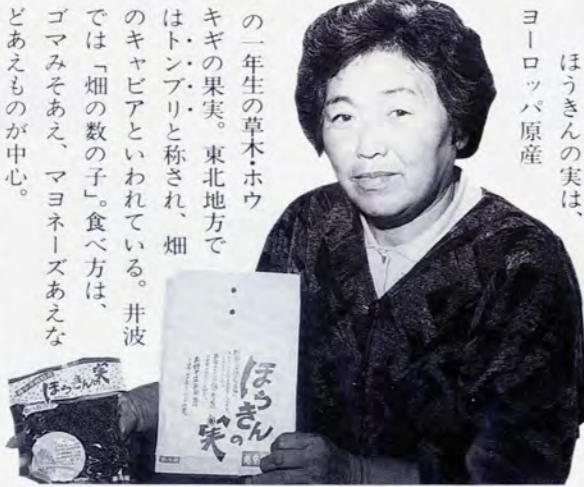 ほうきんの実は、
ヨーロッパ原産
の一年生の草木・ホウ
キギの果実。東北地方で
はトンブリと称され、畑
のキャビアといわれている。井波
では「畑の数の子」。食べ方は、
ゴマみそあえ、マヨネーズあえな
どあえものが中心。
ほうきんの
実
ほうきんの実